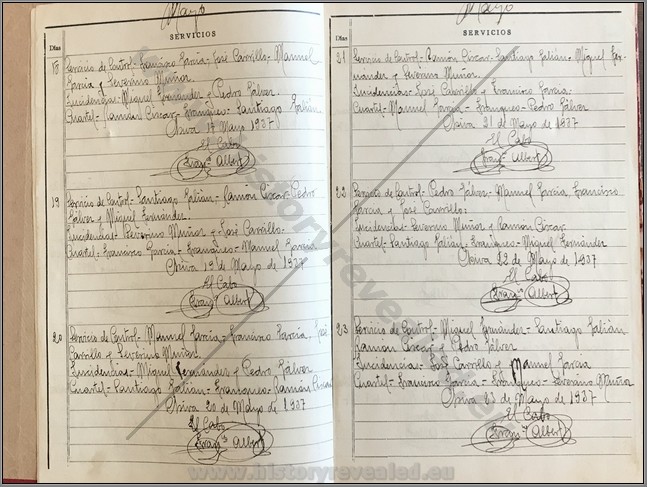 Mayo
SERVICIOS
Días
18 Servicio de Control- Francisco García- José Carrillo- Manuel
García y Severino Muñoz
Incidencias- Miguel Fernández y Pedro Gálvez
Cuartel- Ramón Ciscar- Franqueo- Santiago Galián
Chiva 17 Mayo 1937
El Cabo
Albert
19 Servicio de Control- Santiago Galián- Ramón Ciscar- Pedro
Gálvez y Miguel Fernández.
Incidencias- Severino Muñoz y José Carrillo-
Cuartel- Francisco García- Franqueo- Manuel García
Chiva 19 de Mayo de 1937
El Cabo
Albert
20 Servicio de Control- Manuel García- Francisco García, José
Carrillo y Severino Muñoz.
Incidencias- Miguel Fernández y Pedro Gálvez
Cuartel- Santiago Galián- Franqueo- Ramón Ciscar
Chiva 20 de Mayo de 1937
El Cabo
Albert
Mayo
SERVICIOS
Días
21 Servicio de Control- Ramón Ciscar- Santiago Galián- Miguel Fer-
nández y Severino Muñoz
Incidencias- José Carrillo y Francisco García-
Cuartel- Manuel García- Franqueo- Pedro Gálvez
Chiva 21 de Mayo de 1937
El Cabo
Albert
22 Servicio de Control- Pedro Gálvez- Manuel García, Francisco
García y José Carrillo.
Incidencias- Severino Muñoz y Ramón Ciscar
Cuartel- Santiago Galián- Franqueo- Miguel Fernández
Chiva 22 de Mayo de 1937
El Cabo
Albert
23 Servicio de Control- Miguel Fernández- Santiago Galián
Ramón Ciscar y Pedro Gálvez
Incidencias- José Carrillo y Manuel García
Cuartel- Francisco García- Franqueo- Severino Muñoz
Chiva 23 de Mayo de 1937
El Cabo
Albert
www.historyrevealed.eu